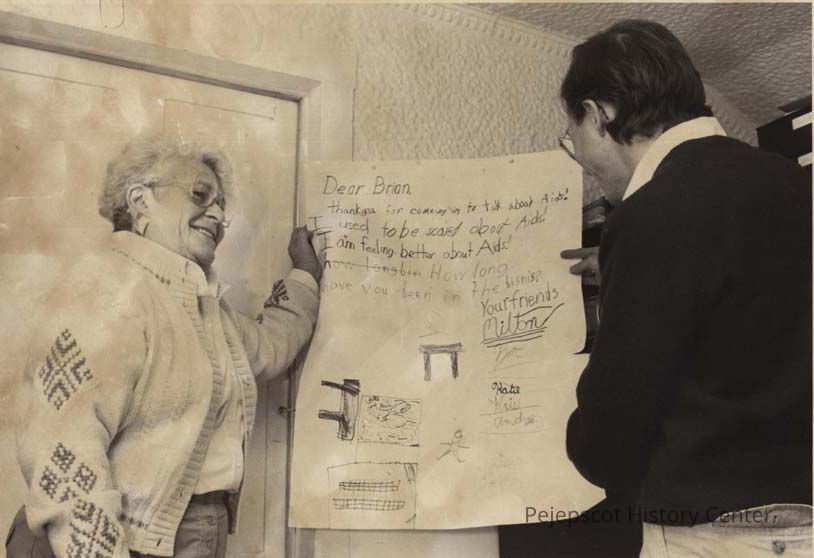 Dear Brian
thankyou for comeing in to talk about Aids!
I used to be scared about Aids!
I am feeling better about Aids!
how long bin How long
have you been in the bisnis?
Your friends
Milton
Katie
andre
Pejepscot History Center